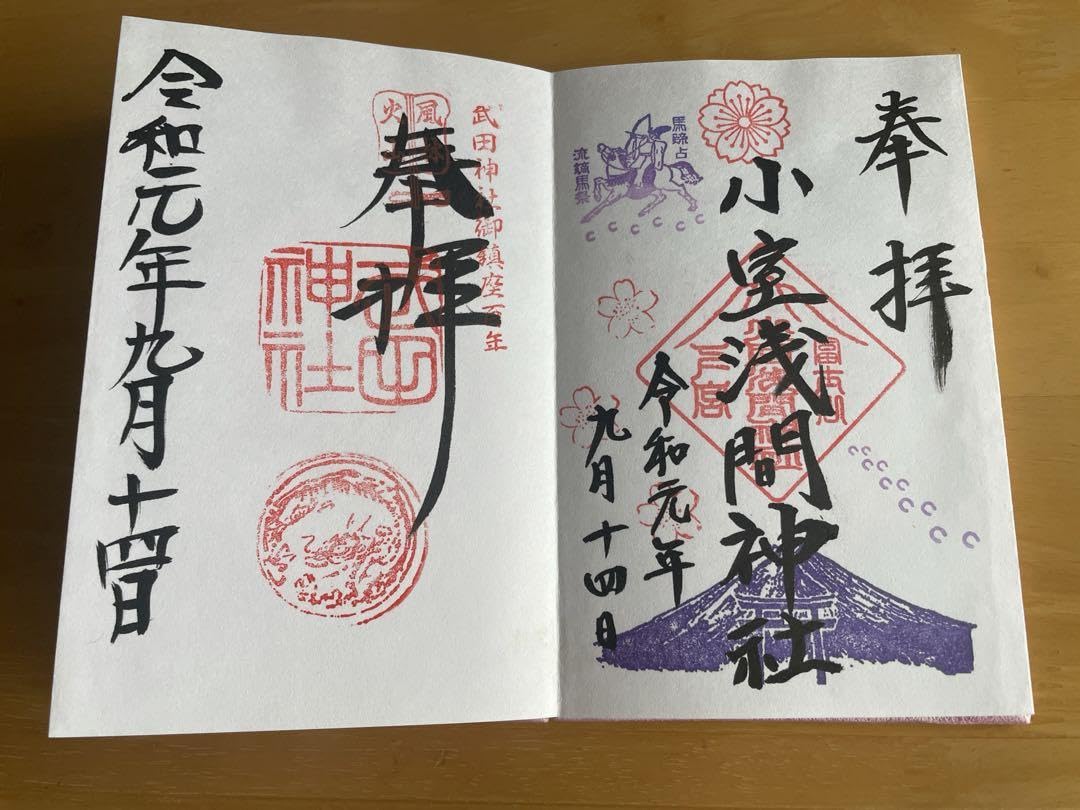 奉拝
馬蹄占
流鏑馬祭
小室浅間神社
令和元年
九月十四日
武田神社御鎮座百年
風林
火
奉拝
武田
神社
令和元年九月十四日